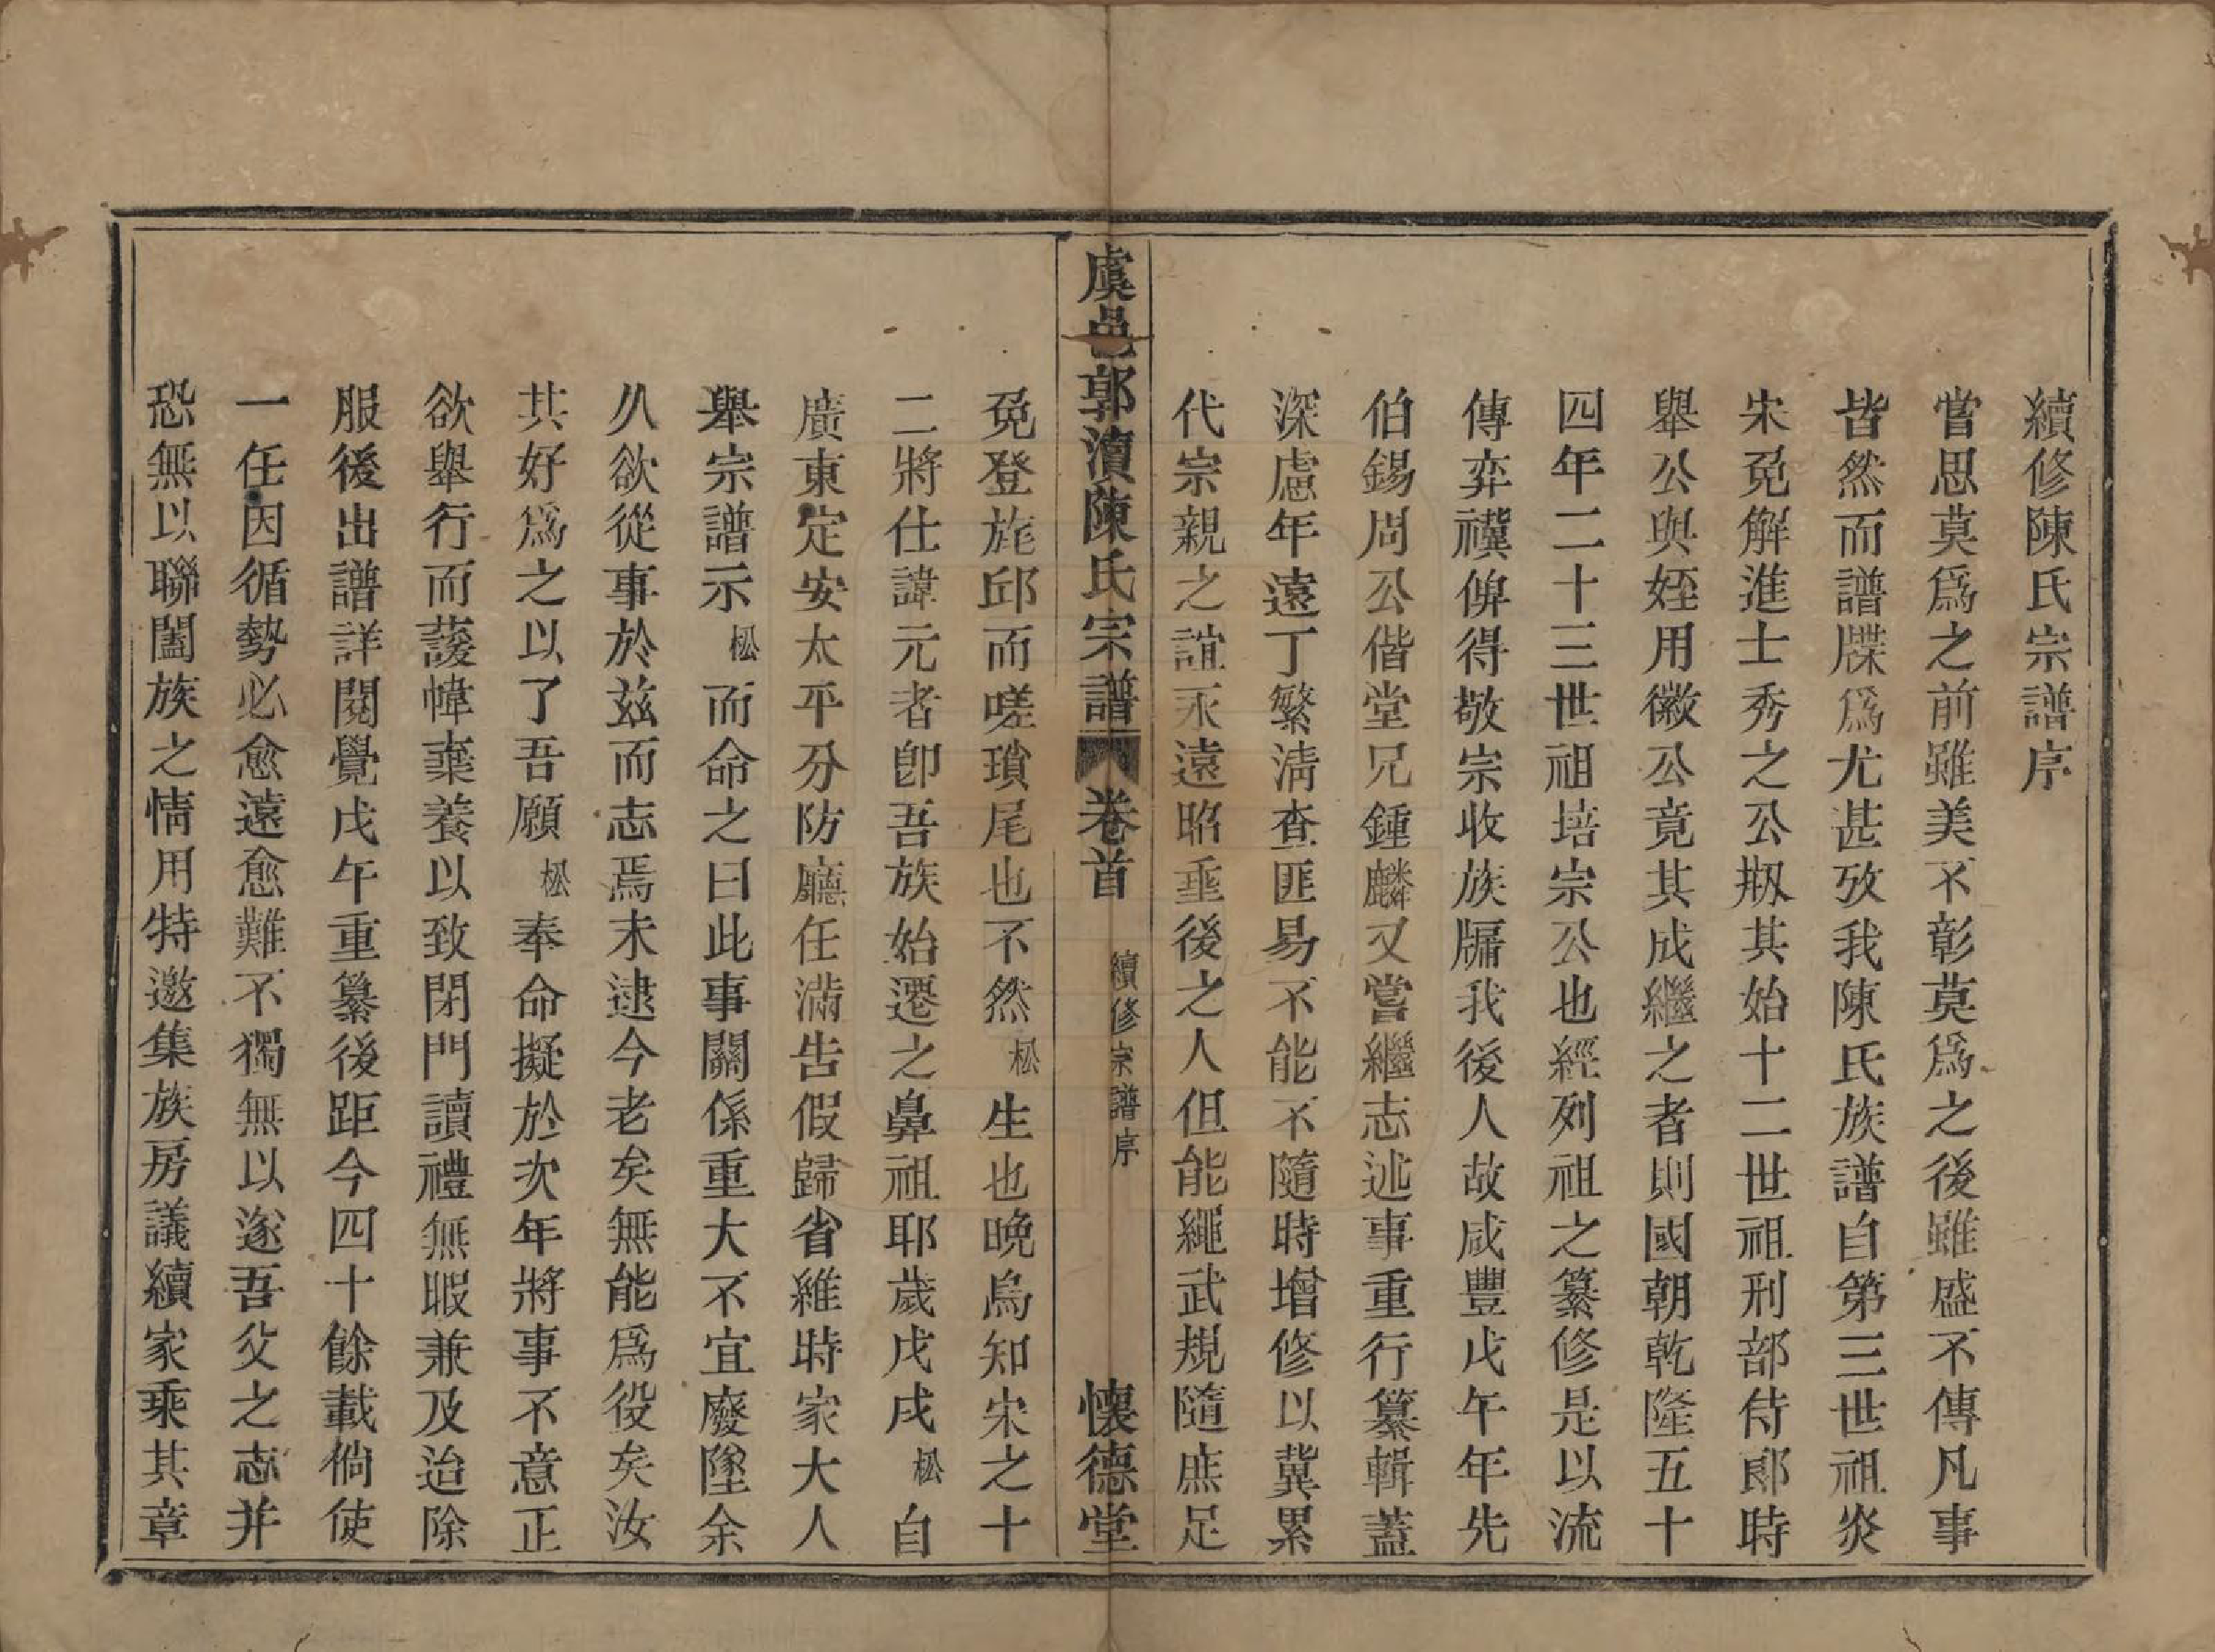 續修陳氏宗譜序
嘗思莫爲之前雖美不彰莫爲之後雖盛不傳凡事
皆然而譜牒爲尤甚攷我陳氏族譜自第三世祖炎
宋免解進士秀之公剏其始十二世祖刑部侍郎時
舉公與姪用徽公竟其成繼之者則國朝乾隆五十
四年二十三世祖培宗公也經列祖之纂修是以流
傳弈禩俾得敬宗收族牖我後人故咸豐戊午年先
伯錫周公偕堂兄鍾麟又嘗繼志述事重行纂輯蓋
深慮年遠丁繁淸查匪易不能不隨時增修以冀累
代宗親之誼永遠昭垂後之人但能繩武規隨庶足
虞邑郭瀆陳氏宗譜 卷首 續修宗譜序 懷德堂
免登旄邱而嗟瑣尾也不然松生也晚烏知宋之十
二將仕諱元者卽吾族始遷之鼻祖耶歲戊戌松自
廣東定安太平分防廳任滿告假歸省維時家大人
舉宗譜示松而命之曰此事關係重大不宜廢墜余
久欲從事於茲而志焉未逮今老矣無能爲役矣汝
其好爲之以了吾願松奉命擬於次年將事不意正
欲舉行而諼幃棄養以致閉門讀禮無暇兼及迨除
服後出譜詳閱覺戊午重纂後距今四十餘載倘使
一任因循勢必愈遠愈難不獨無以遂吾父之志并
恐無以聯闔族之情用特邀集族房議續家乘其章